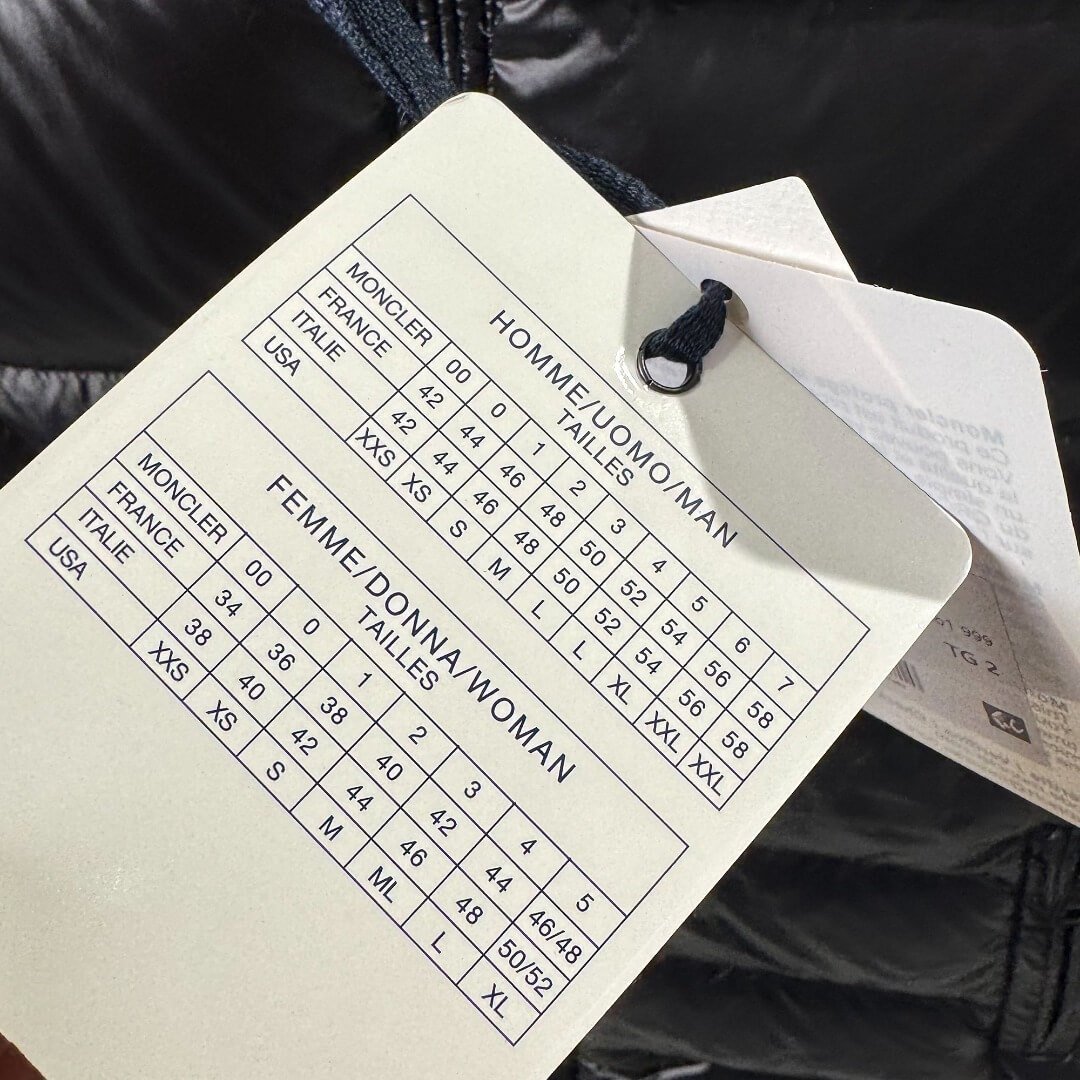 HOMME/UOMO/MAN
TAILLES
MONCLER 00 0 1 2 3 4 5 6 7
FRANCE 42 44 46 48 50 52 54 56 58
ITALIE 42 44 46 48 50 52 54 56 58
USA XXS XS S M L L XL XXL XXL
FEMME/DONNA/WOMAN
TAILLES
MONCLER 00 0 1 2 3 4 5
FRANCE 34 36 38 40 42 44 46/48
ITALIE 38 40 42 44 46 48 50/52
USA XXS XS S M ML L XL
999
TG 2